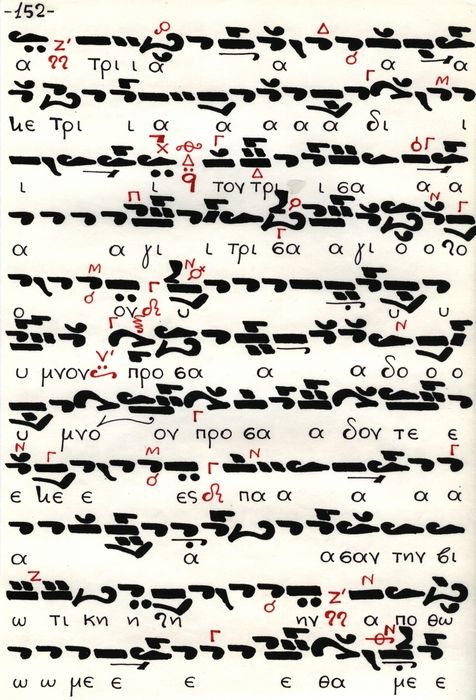 -152-
α τρι ι α α α α
κε τρι ι α α α α α δι ι
ι ι τον τρι ι σα α α
α α γι ι τρι σα α γι ο ο ιο
ο ον υ υ υ
υ μνον προ σα α α δο ο ο
υ μνο ον προ σα α δον τε ε
ε κε ε ες πα α α α α
α α α σαν την βι
ω τι κη η ιη ην α πο θω
ω ω με ε ε ε θα με ε